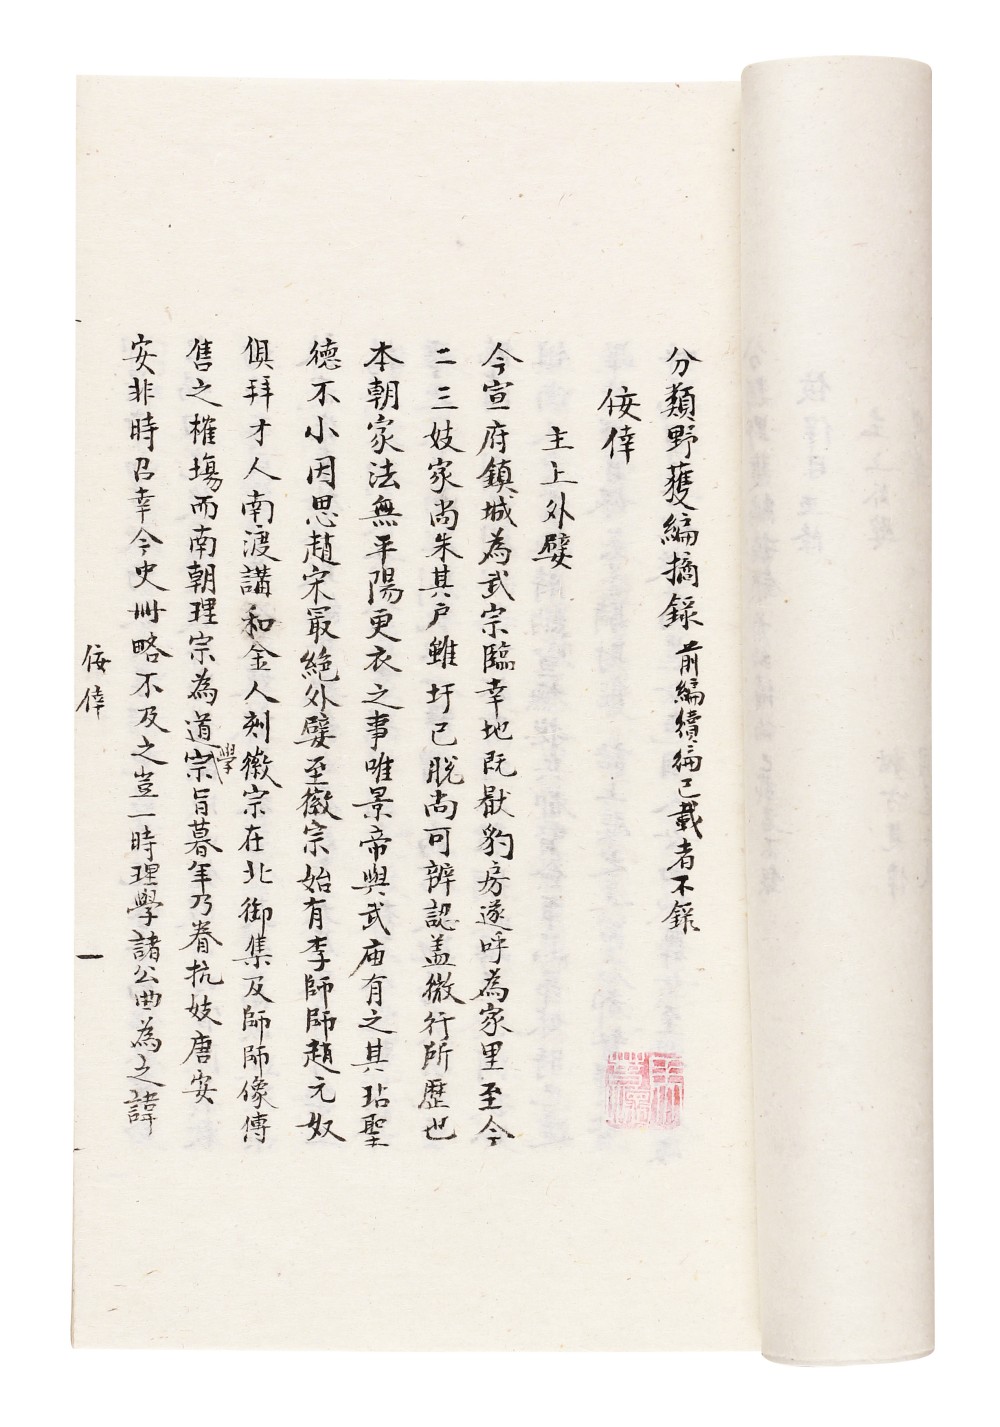 分類野獲編摘錄 前編續編已載者不錄
佞倖
主上外嬖
今宣府鎮城為武宗臨幸地既厭豹房遂呼為家里至今
二三妓家尚朱其户雖圬已脫尚可辨認盖微行所歷也
本朝家法無平陽更衣之事唯景帝與武庙有之其玷聖
德不小因思趙宋最絕外嬖至徽宗始有李師師趙元奴
俱拜才人南渡講和金人刻徽宗在北御集及師師像傳
售之榷塲而南朝理宗為道學宗旨暮年乃眷杭妓唐安
安非時召幸今史冊略不及之豈一時理學諸公曲為之諱
佞倖